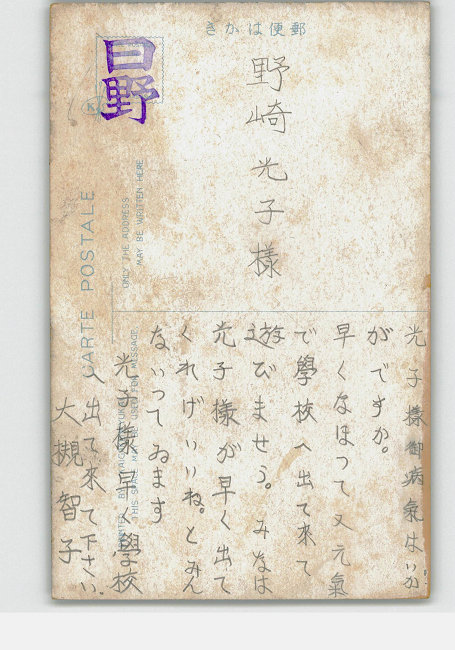 きかは便郵
日野
野崎光子様
CARTE POSTALE
ONLY THE ADDRESS
MAY BE WRITTEN HERE
光子様御病氣はいか
がですか。
早くなほつて又元氣
で學校へ出て來て
遊びませう。みなは
光子様が早く出て
くればいいね。とみん
ないつてゐます
光子様早く學校
へ出て來て下さい。
大槻智子